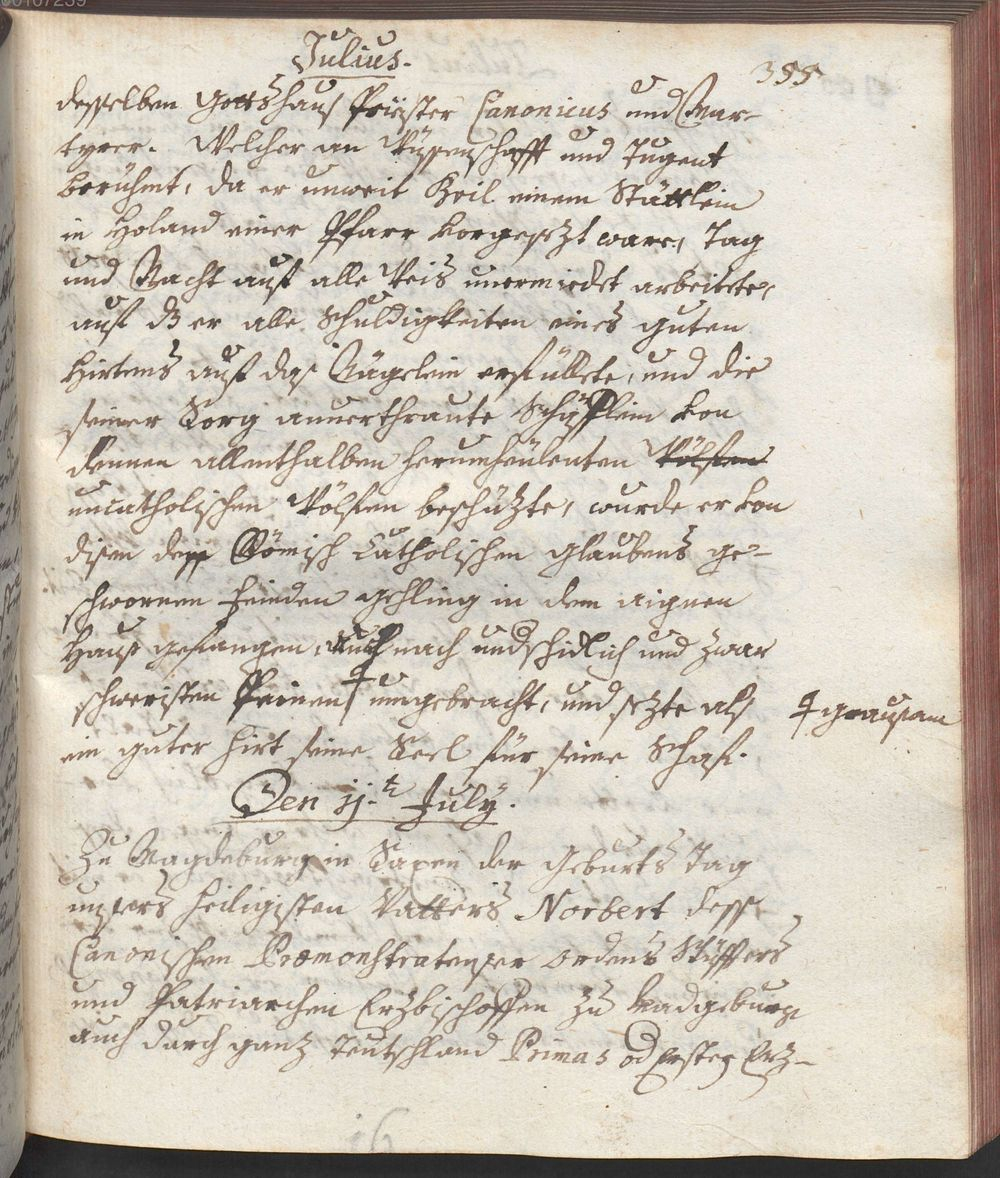 Julius.
355
desselben Gottshaus Priester Canonicus und Mar-
tyrer. Welcher an Wüssenschafft und Tugent
berühmt, da er unweit Breil einem Stättlein
in Holand einer Pfarr vorgesezt ware, Tag
und Nacht auf alle Weis unermiedet arbeitete,
auf dz er alle Schuldigkeiten eines guten
Hirtens auf das Nägelein erfüllete, und die
seiner Sorg anverthraute Schäfflein von
dennen allenthalben herumheulenten Wölfen
uncatholischen Wölfen beschüzte, wurde er von
disen dess Römisch Catholischen Glaubens ge-
schwornen Feinden gehling in dem aignen
Haus gefangen, nach undschidlich und zwar
schweristen Peinen umgebracht, und sezte als
grausam
ein guter Hirt seine Seel für seine Schaf.
Den 11.t July.
Zu Magdeburg in Saxen der Geburts Tag
unsers heiligisten Vatters Norbert dess
Canonischen Præmonstratenser Ordens Stüffters
und Patriarchen Erzbischoffen zu Madgeburg
auch durch ganz Teutschland Primas od Ersten Erz-